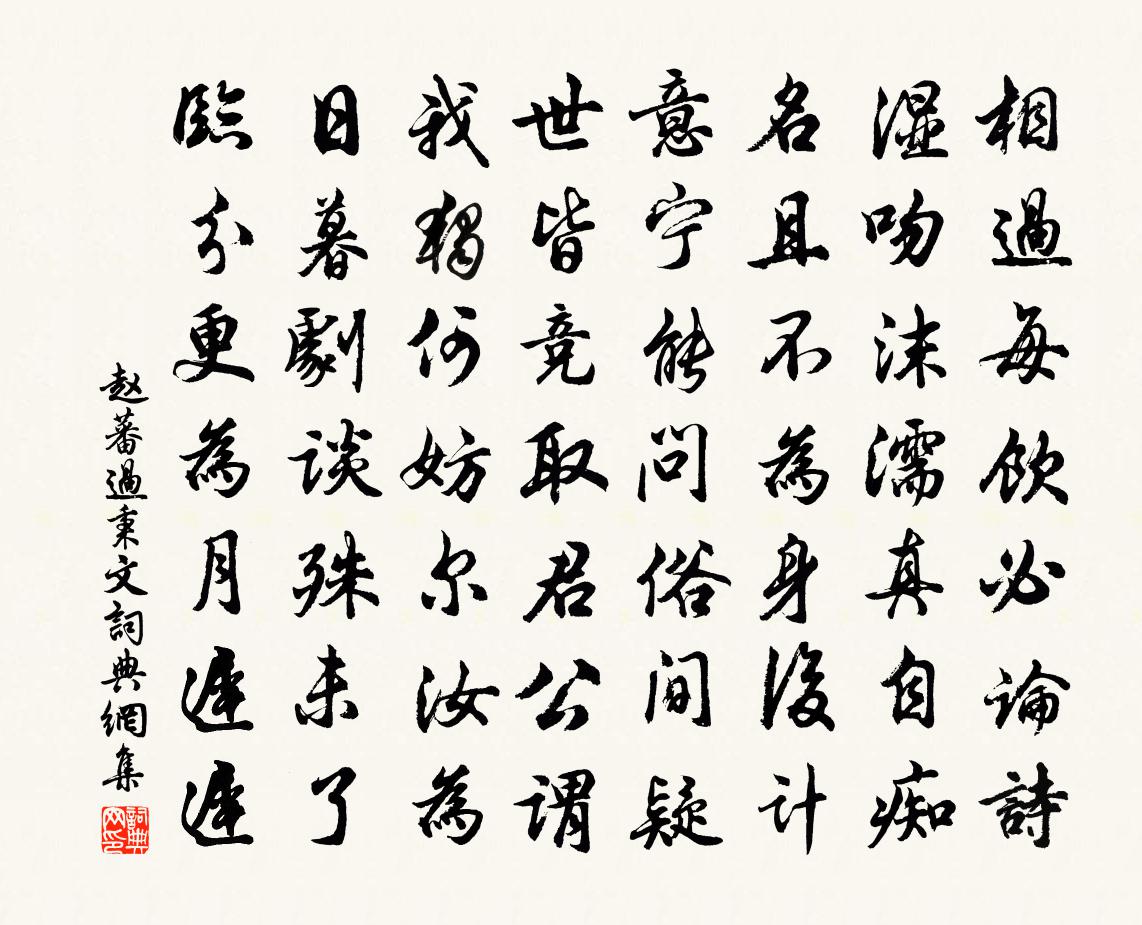 相過每飲必論詩
湿吻沫濡真自痴
名且不為身後计
意宁能問俗间疑
世皆竞取君公谓
我獨何妨尔汝為
日暮劇谈殊未了
臨分更為月遲遲
赵蕃過秉文詞典網集
詞典网印